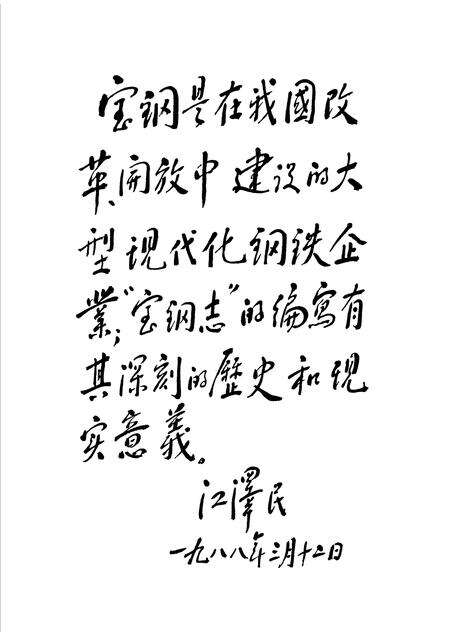 宝钢是在我國改
革、開放中建设的大
型现代化钢铁企
業；“宝钢志”的编寫有
其深刻的歷史和现
实意義。
江澤民
一九八八年三月十二日